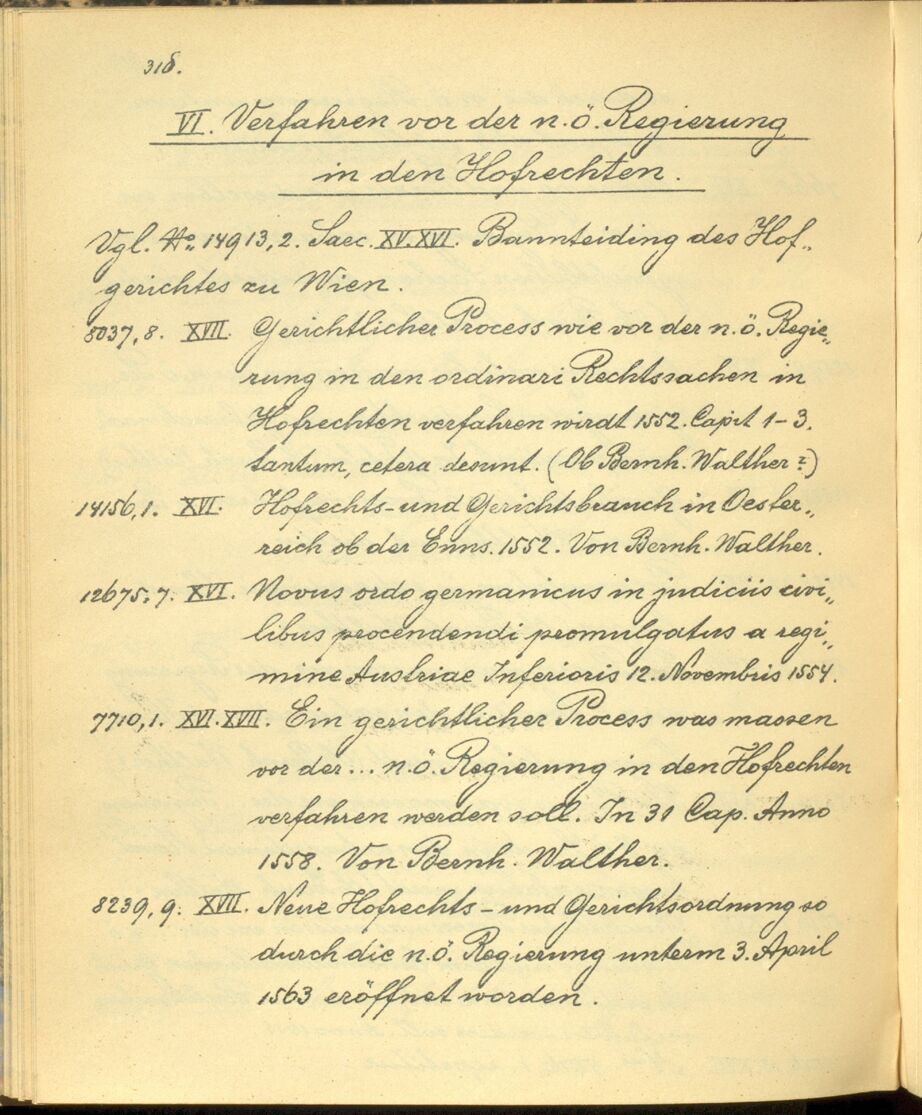 318.
VI. Verfahren vor der n. ö. Regierung
in den Hofrechten.
Vgl. No. 14913, 2. Saec. XV. XVI. Bannteiding des Hof„
gerichtes zu Wien.
8037, 8. XVII. Gerichtlicher Process wie vor der n. ö. Regie„
rung in den ordinari Rechtssachen in
Hofrechten verfahren wirdt 1552. Capit 1-3.
tantum, cetera desunt. (Ob Bernh. Walther?)
14156, 1. XVI. Hofrechts- und Gerichtsbrauch in Oester„
reich ob der Enns. 1552. Von Bernh. Walther.
12675, 7. XVI. Novus ordo germanicus in judiciis civi„
libus procendendi promulgatus a regi„
mine Austriae Inferioris 12. Novembris 1554.
7710, 1. XVI. XVII. Ein gerichtlicher Process was massen
vor der ... n. ö. Regierung in den Hofrechten
verfahren werden soll. In 31 Cap. Anno
1558. Von Bernh. Walther.
8239, 9. XVII. Neue Hofrechts- und Gerichtsordnung so
durch die n. ö. Regierung unterm 3. April
1563 eröffnet worden.